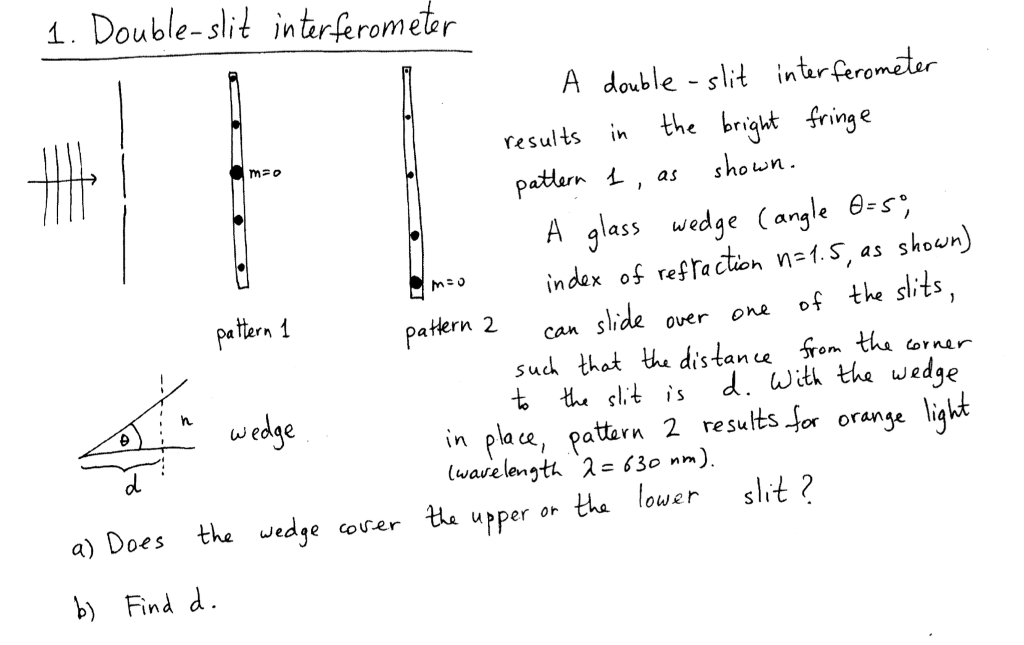 1. Double-slit interferometer
m=0
m=0
pattern 1
pattern 2
A double-slit interferometer
results in the bright fringe
pattern 1, as shown.
A glass wedge (angle θ=5°,
index of refraction n=1.5, as shown)
can slide over one of the slits,
such that the distance from the corner
to the slit is d. With the wedge
in place, pattern 2 results for orange light
(wavelength λ=630 nm).
θ
n
wedge
d
a) Does the wedge cover the upper or the lower slit?
b) Find d.